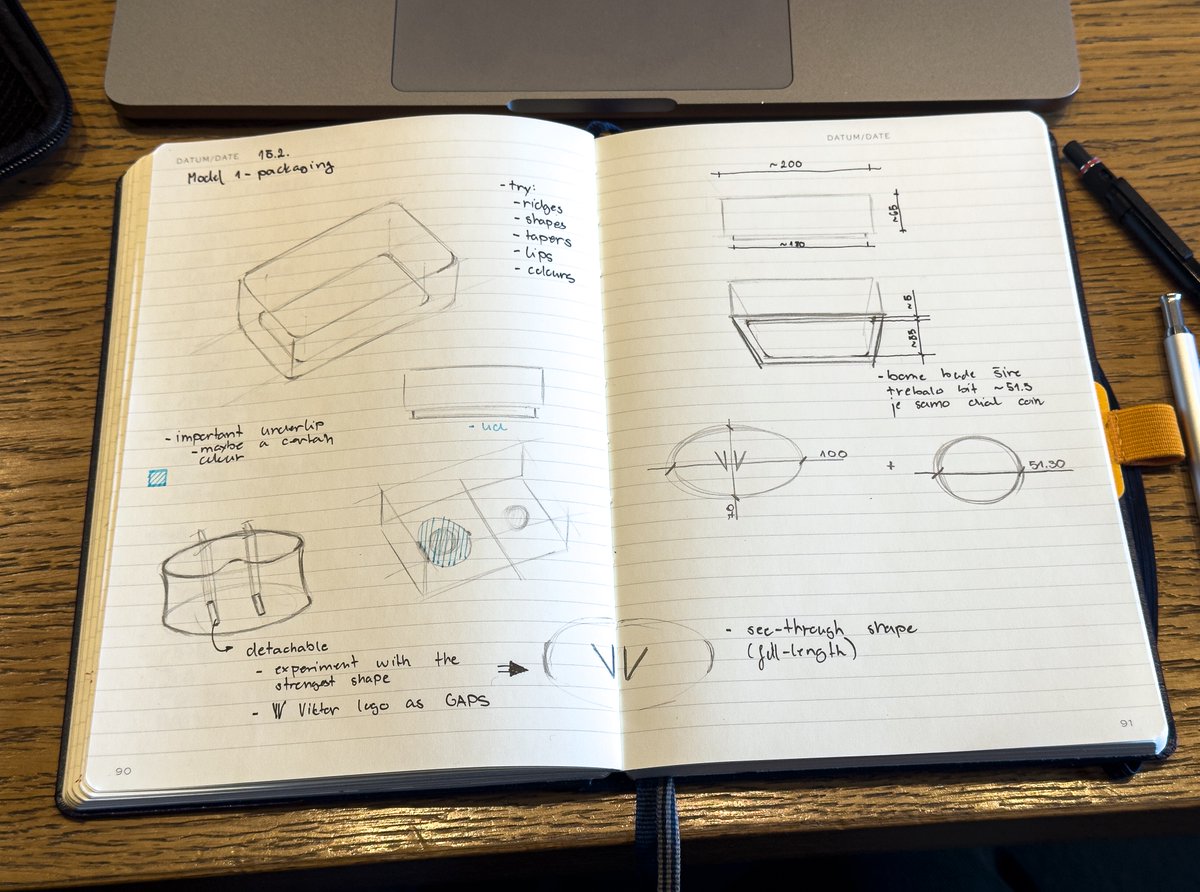 DATUM/DATE 15.2.
Model 1 - packaging
- try:
- ridges
- shapes
- tapers
- lips
- colours
- important underlip
- maybe a certain
colour
- lid
detachable
- experiment with the
strongest shape
- W Viktor logo as GAPS
VV
90
DATUM/DATE
~200
~65
~180
~5
~35
šire
trebalo bit ~51.3
je samo dial coin
VV
100
70
+
51.30
- see-through shape
(full-length)
91